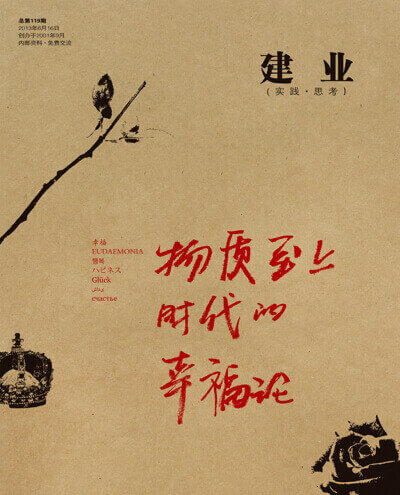 总第119期
2013年6月16日
创办于2001年9月
内部资料·免费交流
建 业
(实践·思考)
幸福
EUDAEMONIA
행복
ハピネス
Glück
счастье
物质至上
时代的
幸福论